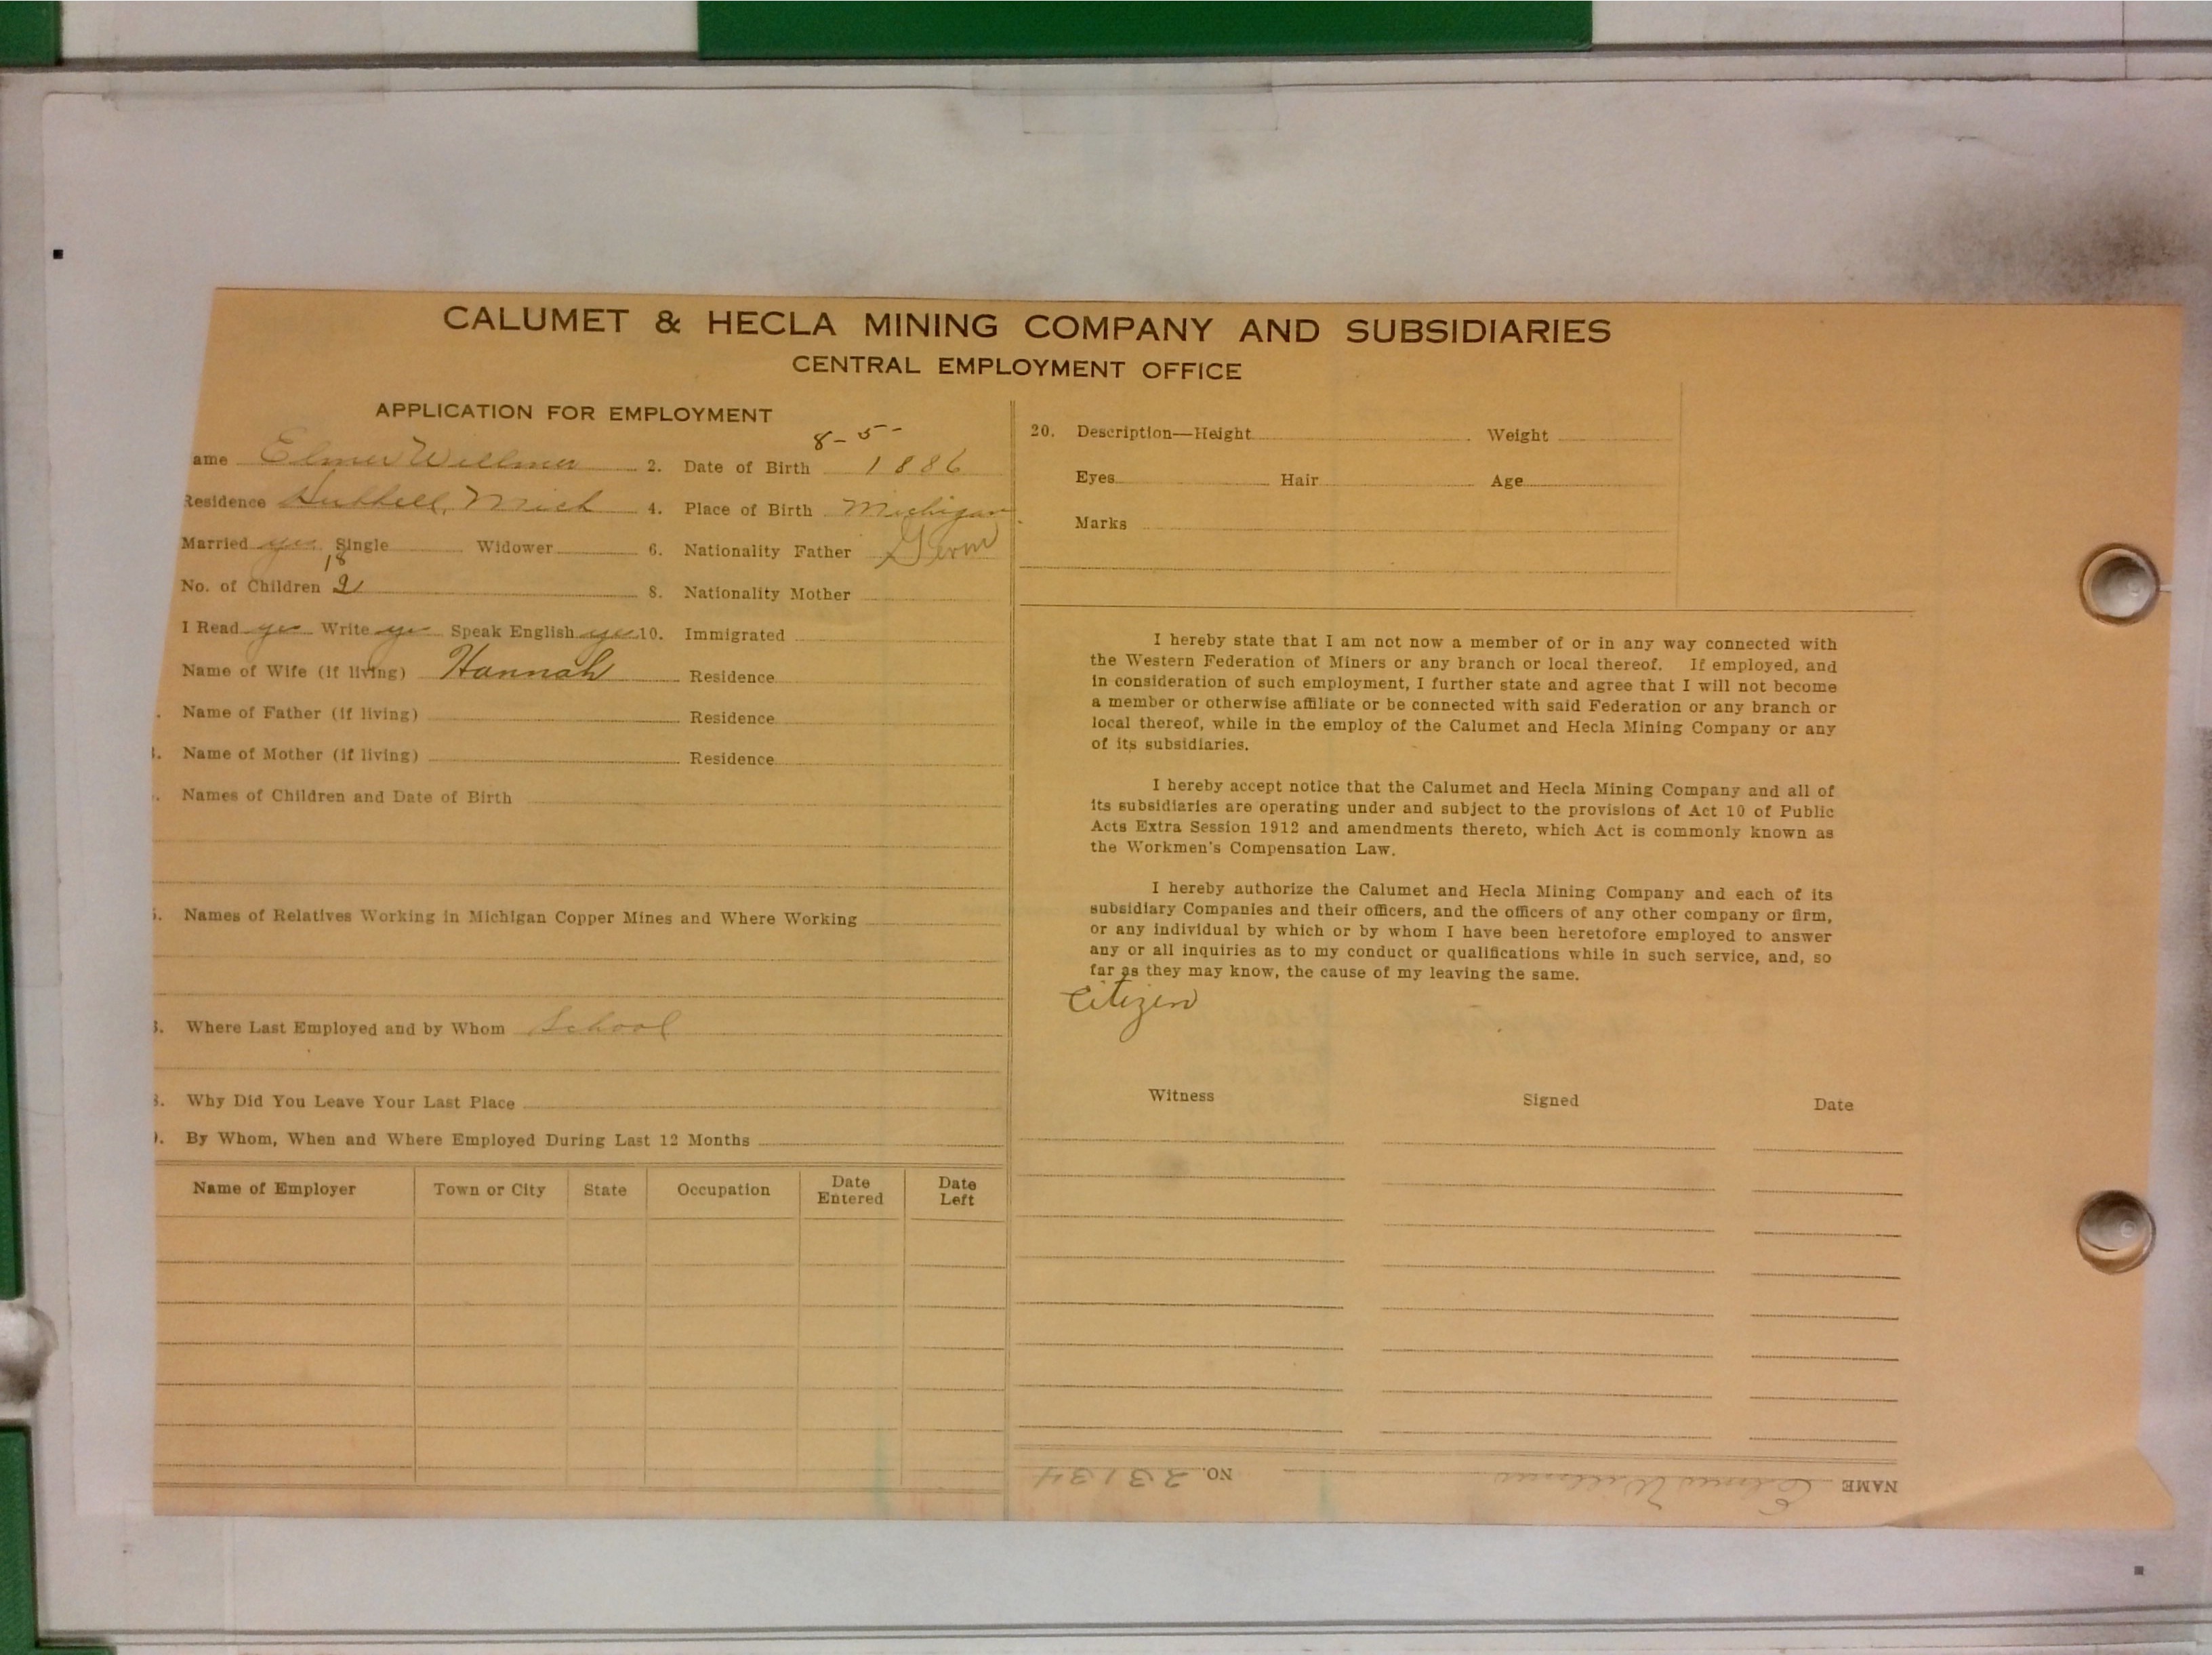 CALUMET & HECLA MINING COMPANY AND SUBSIDIARIES
CENTRAL EMPLOYMENT OFFICE
APPLICATION FOR EMPLOYMENT
8-5-
ame Elmer Willmer 2. Date of Birth 1886
Residence Hubbell, Mich 4. Place of Birth Michigan
Married yes Single Widower 6. Nationality Father Germ
18
No. of Children 2 8. Nationality Mother
I Read yes Write yes Speak English yes 10. Immigrated
Name of Wife (if living) Hannah Residence
. Name of Father (if living) Residence
. Name of Mother (if living) Residence
. Names of Children and Date of Birth
. Names of Relatives Working in Michigan Copper Mines and Where Working
. Where Last Employed and by Whom School
. Why Did You Leave Your Last Place
. By Whom, When and Where Employed During Last 12 Months
Name of Employer Town or City State Occupation Date Entered Date Left
20. Description—Height Weight
Eyes Hair Age
Marks
I hereby state that I am not now a member of or in any way connected with
the Western Federation of Miners or any branch or local thereof. If employed, and
in consideration of such employment, I further state and agree that I will not become
a member or otherwise affiliate or be connected with said Federation or any branch or
local thereof, while in the employ of the Calumet and Hecla Mining Company or any
of its subsidiaries.
I hereby accept notice that the Calumet and Hecla Mining Company and all of
its subsidiaries are operating under and subject to the provisions of Act 10 of Public
Acts Extra Session 1912 and amendments thereto, which Act is commonly known as
the Workmen's Compensation Law.
I hereby authorize the Calumet and Hecla Mining Company and each of its
subsidiary Companies and their officers, and the officers of any other company or firm,
or any individual by which or by whom I have been heretofore employed to answer
any or all inquiries as to my conduct or qualifications while in such service, and, so
far as they may know, the cause of my leaving the same.
Citizen
Witness Signed Date
NAME Elmer Willmer NO. 23134